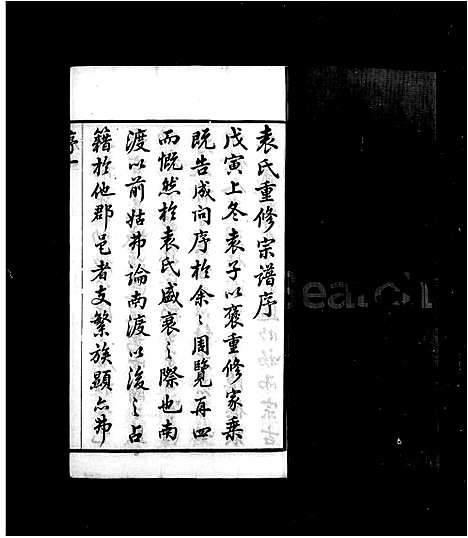 袁氏重修宗譜序
戊寅上冬袁子以褒重修家乗
既告成问序於余〻周覽再四
而慨然於袁氏盛衰〻際也南
渡以前姑弗論南渡以後〻占
籍於他郡邑者支繁族顯亦弗
序一
earch